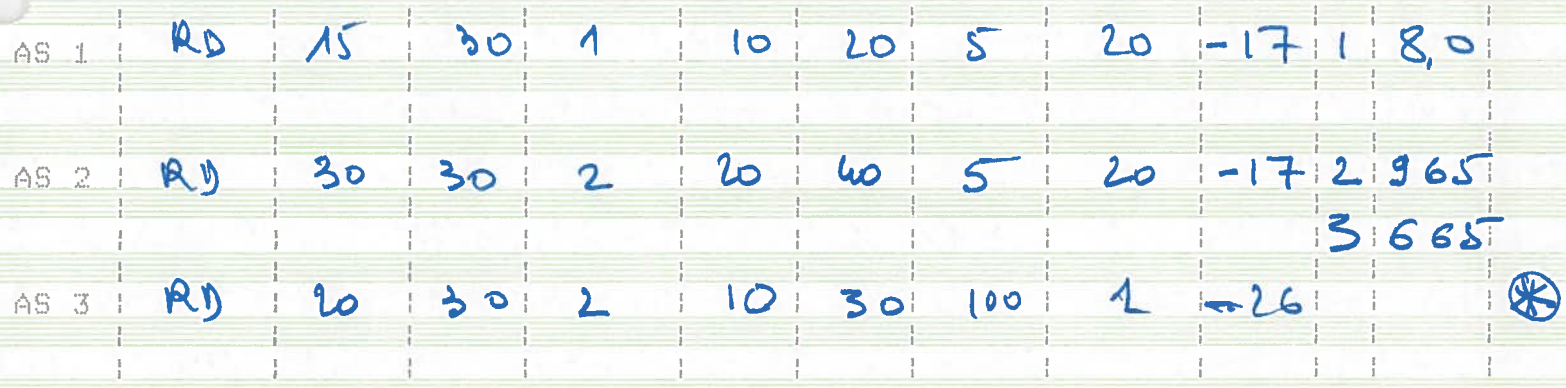 AS 1 RD 15 30 1 10 20 5 20 -17 1 8,0
AS 2 RD 30 30 2 20 40 5 20 -17 2 965
3 665
AS 3 RD 20 30 2 10 30 100 1 -26